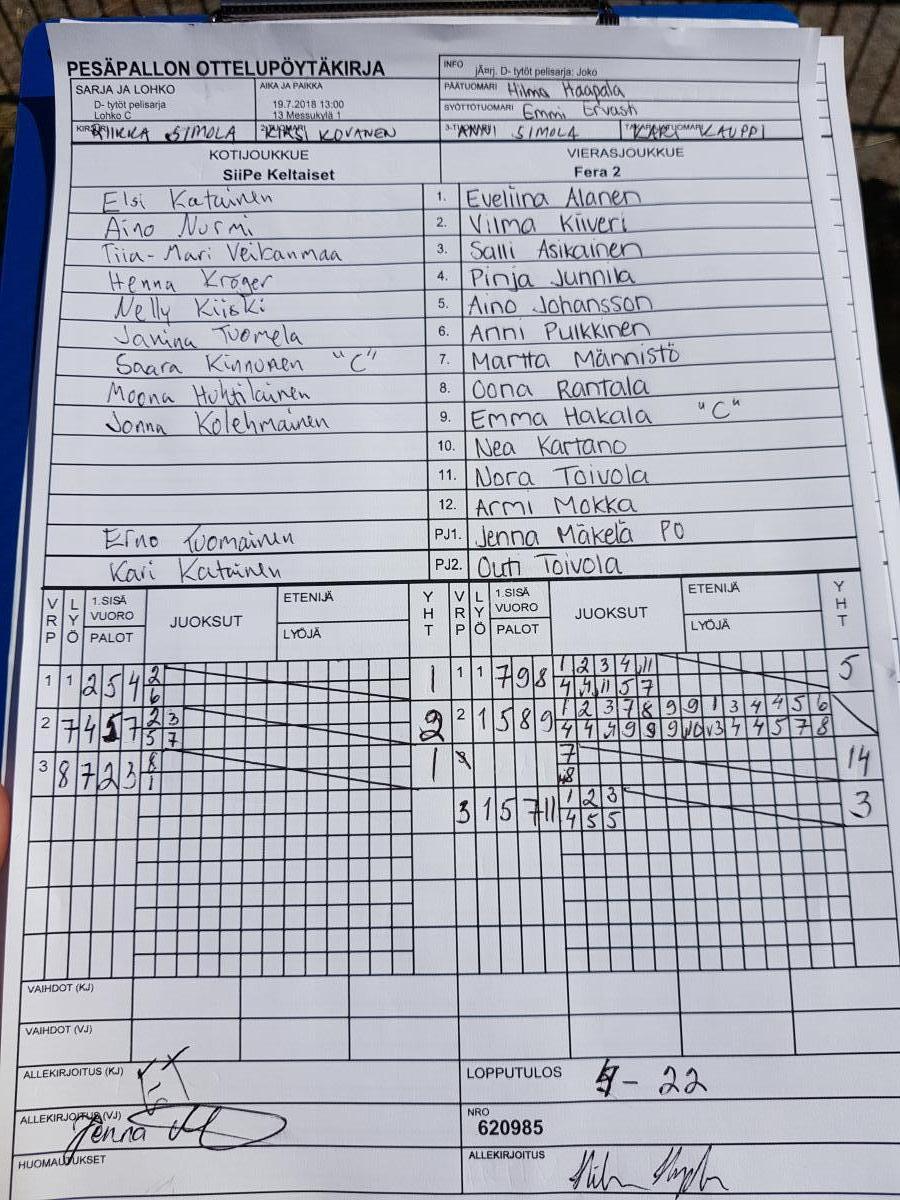 PESÄPALLON OTTELUPÖYTÄKIRJA
INFO jÄ¤rj. D- tytöt pelisarja: Joko
SARJA JA LOHKO
D- tytöt pelisarja
Lohko C
AIKA JA PAIKKA
19.7.2018 13:00
13 Messukylä 1
PÄÄTUOMARI Hilma Haapala
SYÖTTÖTUOMARI Emmi Ervasti
RIIKKA SIMOLA
KIRSI KOVANEN
ANARI SIMOLA
KARI KAUPPI
KOTIJOUKKUE
SiiPe Keltaiset
VIERASJOUKKUE
Fera 2
Elsi Katainen 1. Eveliina Alanen
Aino Nurmi 2. Vilma Kiiveri
Tiia-Mari Veikanmaa 3. Salli Asikainen
Henna Kröger 4. Pinja Junnila
Nelly Kiiski 5. Aino Johansson
Janina Tuomela 6. Anni Pulkkinen
Saara Kinnunen "C" 7. Martta Männistö
Moona Huhtilainen 8. Oona Rantala
Jonna Kolehmainen 9. Emma Hakala "C"
10. Nea Kartano
11. Nora Toivola
12. Armi Mokka
Erno Tuomainen PJ1. Jenna Mäkelä PO
Kari Katainen PJ2. Outi Toivola
VRP LYÖ 1.SISÄ VUORO PALOT JUOKSUT ETENIJÄ LYÖJÄ YHT VRP LYÖ 1.SISÄ VUORO PALOT JUOKSUT ETENIJÄ LYÖJÄ YHT
1 1 2 5 4 2 1 1 1 7 9 8 1 2 3 4 11 5
6 4 4 11 5 7
2 7 4 5 7 2 3 2 2 1 5 8 9 1 2 3 7 8 9 9 1 3 4 4 5 6
5 7
3 8 7 2 3 8 1 7 14
1 8
3 1 5 7 11 1 2 3 3
4 5 5
VAIHDOT (KJ)
VAIHDOT (VJ)
ALLEKIRJOITUS (KJ)
LOPPUTULOS - 22
ALLEKIRJOITUS (VJ) Jenna
NRO
620985
HUOMAUTUKSET
ALLEKIRJOITUS